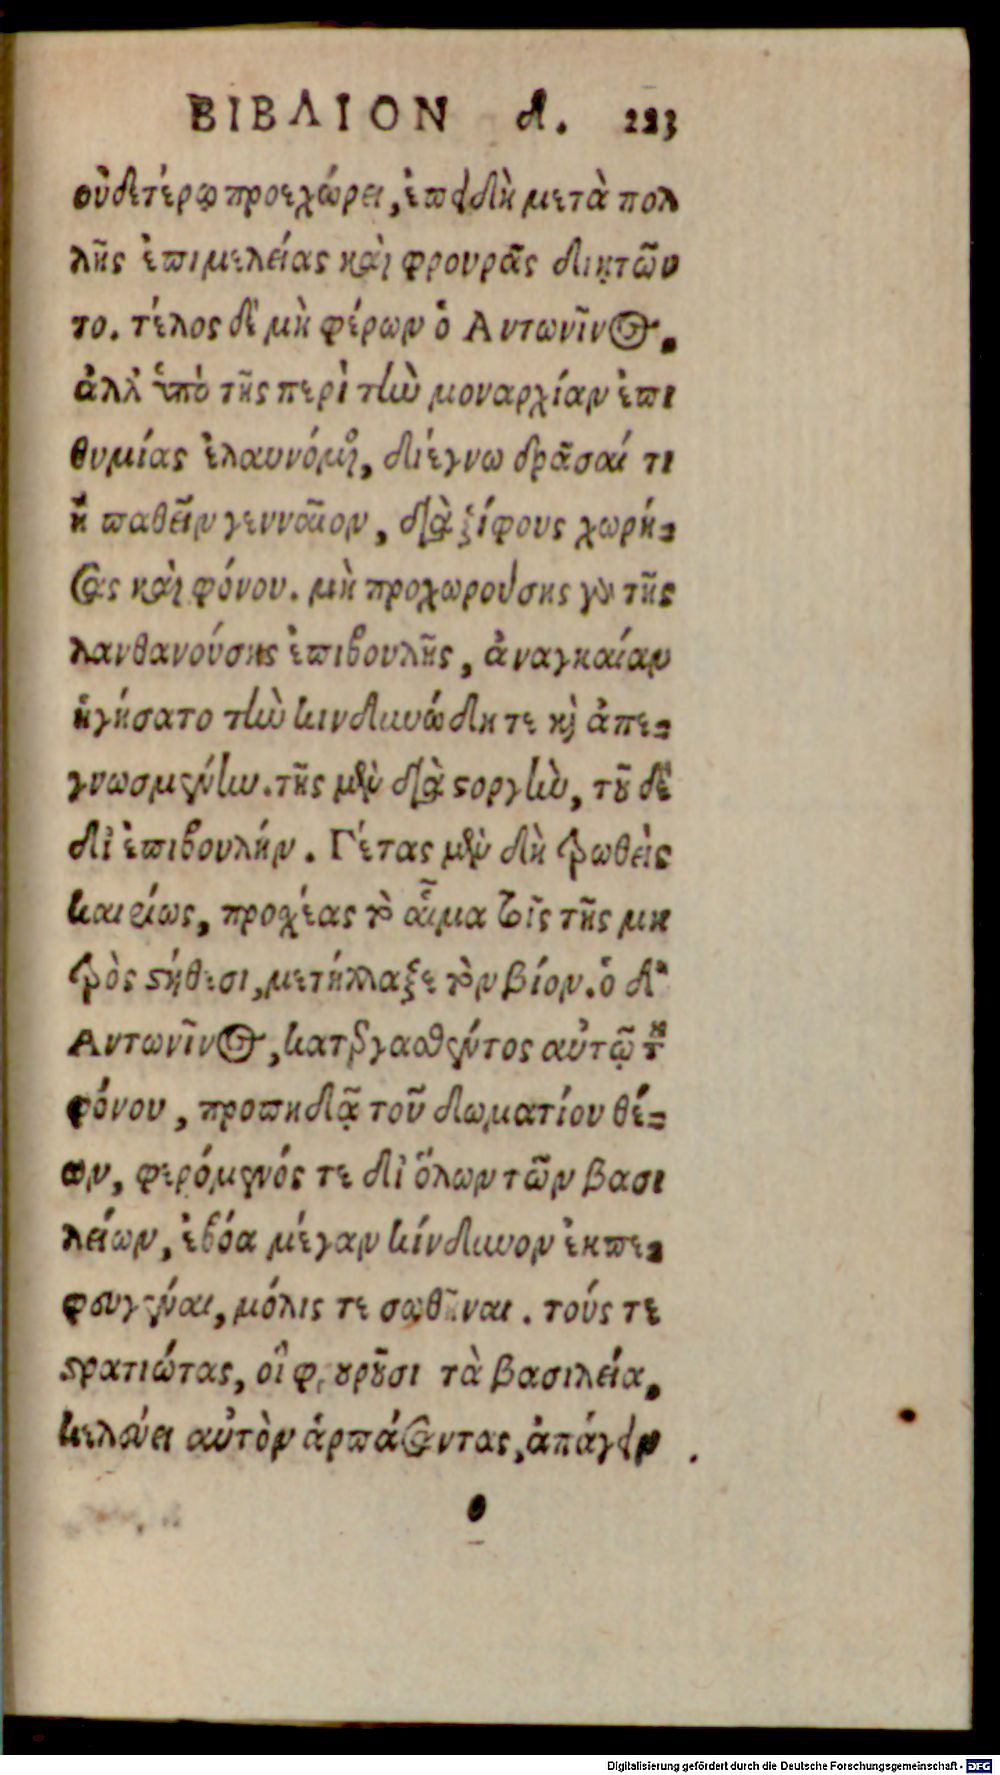 ΒΙΒΛΙΟΝ δ. 223
οὐδετέρῳ προεχώρει, ἐπειδὴ μετὰ πολ
λῆς ἐπιμελείας καὶ φρουρᾶς διῃτῶν
το. τέλος δὲ μὴ φέρων ὁ Αντωνῖνος.
ἀλλ' ὑπὸ τῆς περὶ τὴν μοναρχίαν ἐπι
θυμίας ἐλαυνόμενος, διέγνω δρᾶσαί τι
ἢ παθεῖν γενναῖον, διὰ ξίφους χωρή-
σας καὶ φόνου. μὴ προχωρούσης γὰρ τῆς
λανθανούσης ἐπιβουλῆς, ἀναγκαίαν
ἡγήσατο τὴν κινδυνώδη τε καὶ ἀπε-
γνωσμένην. τῆς μὲν διὰ στοργὴν, τοῦ δὲ
δι' ἐπιβουλήν. Γέτας μὲν δὴ τρωθεὶς
καιρίως, προχέας τὸ αἷμα τοῖς τῆς μη
τρὸς στήθεσι, μετήλλαξε τὸν βίον. ὁ δὲ
Αντωνῖνος, κατεργασθέντος αὐτῷ τοῦ
φόνου, προπηδᾷ τοῦ δωματίου θέ-
ων, φερόμενός τε δι' ὅλων τῶν βασι
λείων, ἐβόα μέγαν κίνδυνον ἐκπε-
φευγέναι, μόλις τε σωθῆναι. τούς τε
στρατιώτας, οἳ φρουροῦσι τὰ βασίλεια,
κελεύει αὐτὸν ἁρπάσαντας, ἀπάγειν